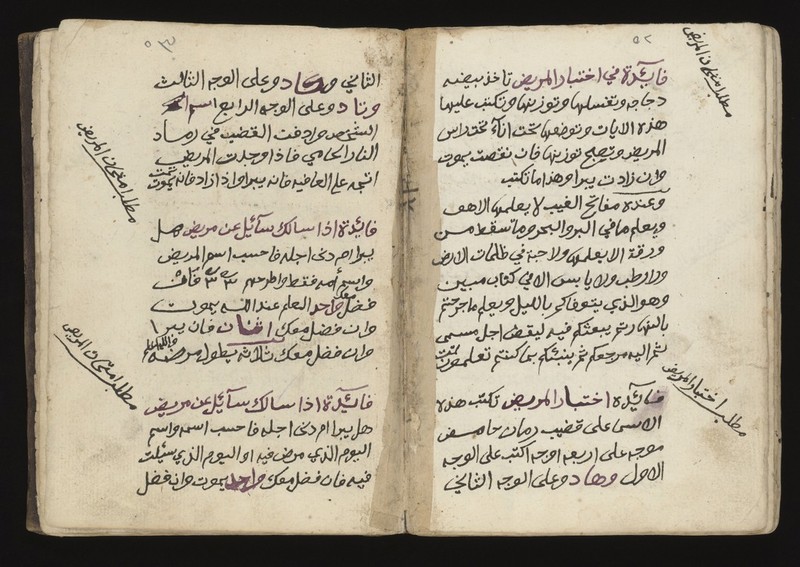 ٥٢
مطلب امتحان المريض
فائدة في اختبار المريض تاخذ بيضه
دجاجه وتغسلها وتوزينها وتكتب عليها
هذه الايات وتوضعها تحت اناء تحت راس
المريض وتصبح توزينها فان نقصت يموت
وان زادت يبرا وهذا ما تكتب
وعنده مفاتح الغيب لا يعلمها الا هو
ويعلم ما في البر والبحر وما تسقط من
ورقة الا يعلمها ولا حبة في ظلمات الارض
ولا رطب ولا يابس الا في كتاب مبين
وهو الذي يتوفاكم بالليل ويعلم ما جرحتم
بالنهار ثم يبعثكم فيه ليقضى اجل مسمى
ثم اليه مرجعكم ثم ينبئكم بما كنتم تعلمون
مطلب اختبار المريض
فائدة اختبار المريض تكتب هذه
الاسما على قضيب رمان حامض
موجه على اربعه اوجه اكتب على الوجه
الاول وهاد وعلى الوجه الثاني
٥٣
الثاني وعلى الوجه الثالث
وتاد وعلى الوجه الرابع اسم
الشخص وادفت القضيب في رماد
النار الحامي فاذا وجدت المريض
اتجه على العافيه فانه يبرا واذا زاد فانه يموت
مطلب امتحان المريض
فائدة اذا سالك سائل عن مريض هل
يبرا ام دنى اجله فاحسب اسم المريض
واسم أمه فقط واطرحهم ٣ ٣ فان
فضل معك واحد العلم عند الله يموت
وان فضل معك اثنان فان يبرا
وان فضل معك ثلاثه يطول مرضه والله اعلم
مطلب امتحان المريض
فائدة اذا سالك سائل عن مريض
هل يبرا ام دنى اجله فاحسب اسمه واسم
اليوم الذي مرض فيه او اليوم الذي سئلت
فيه فان فضل معك واحد يموت وان فضل